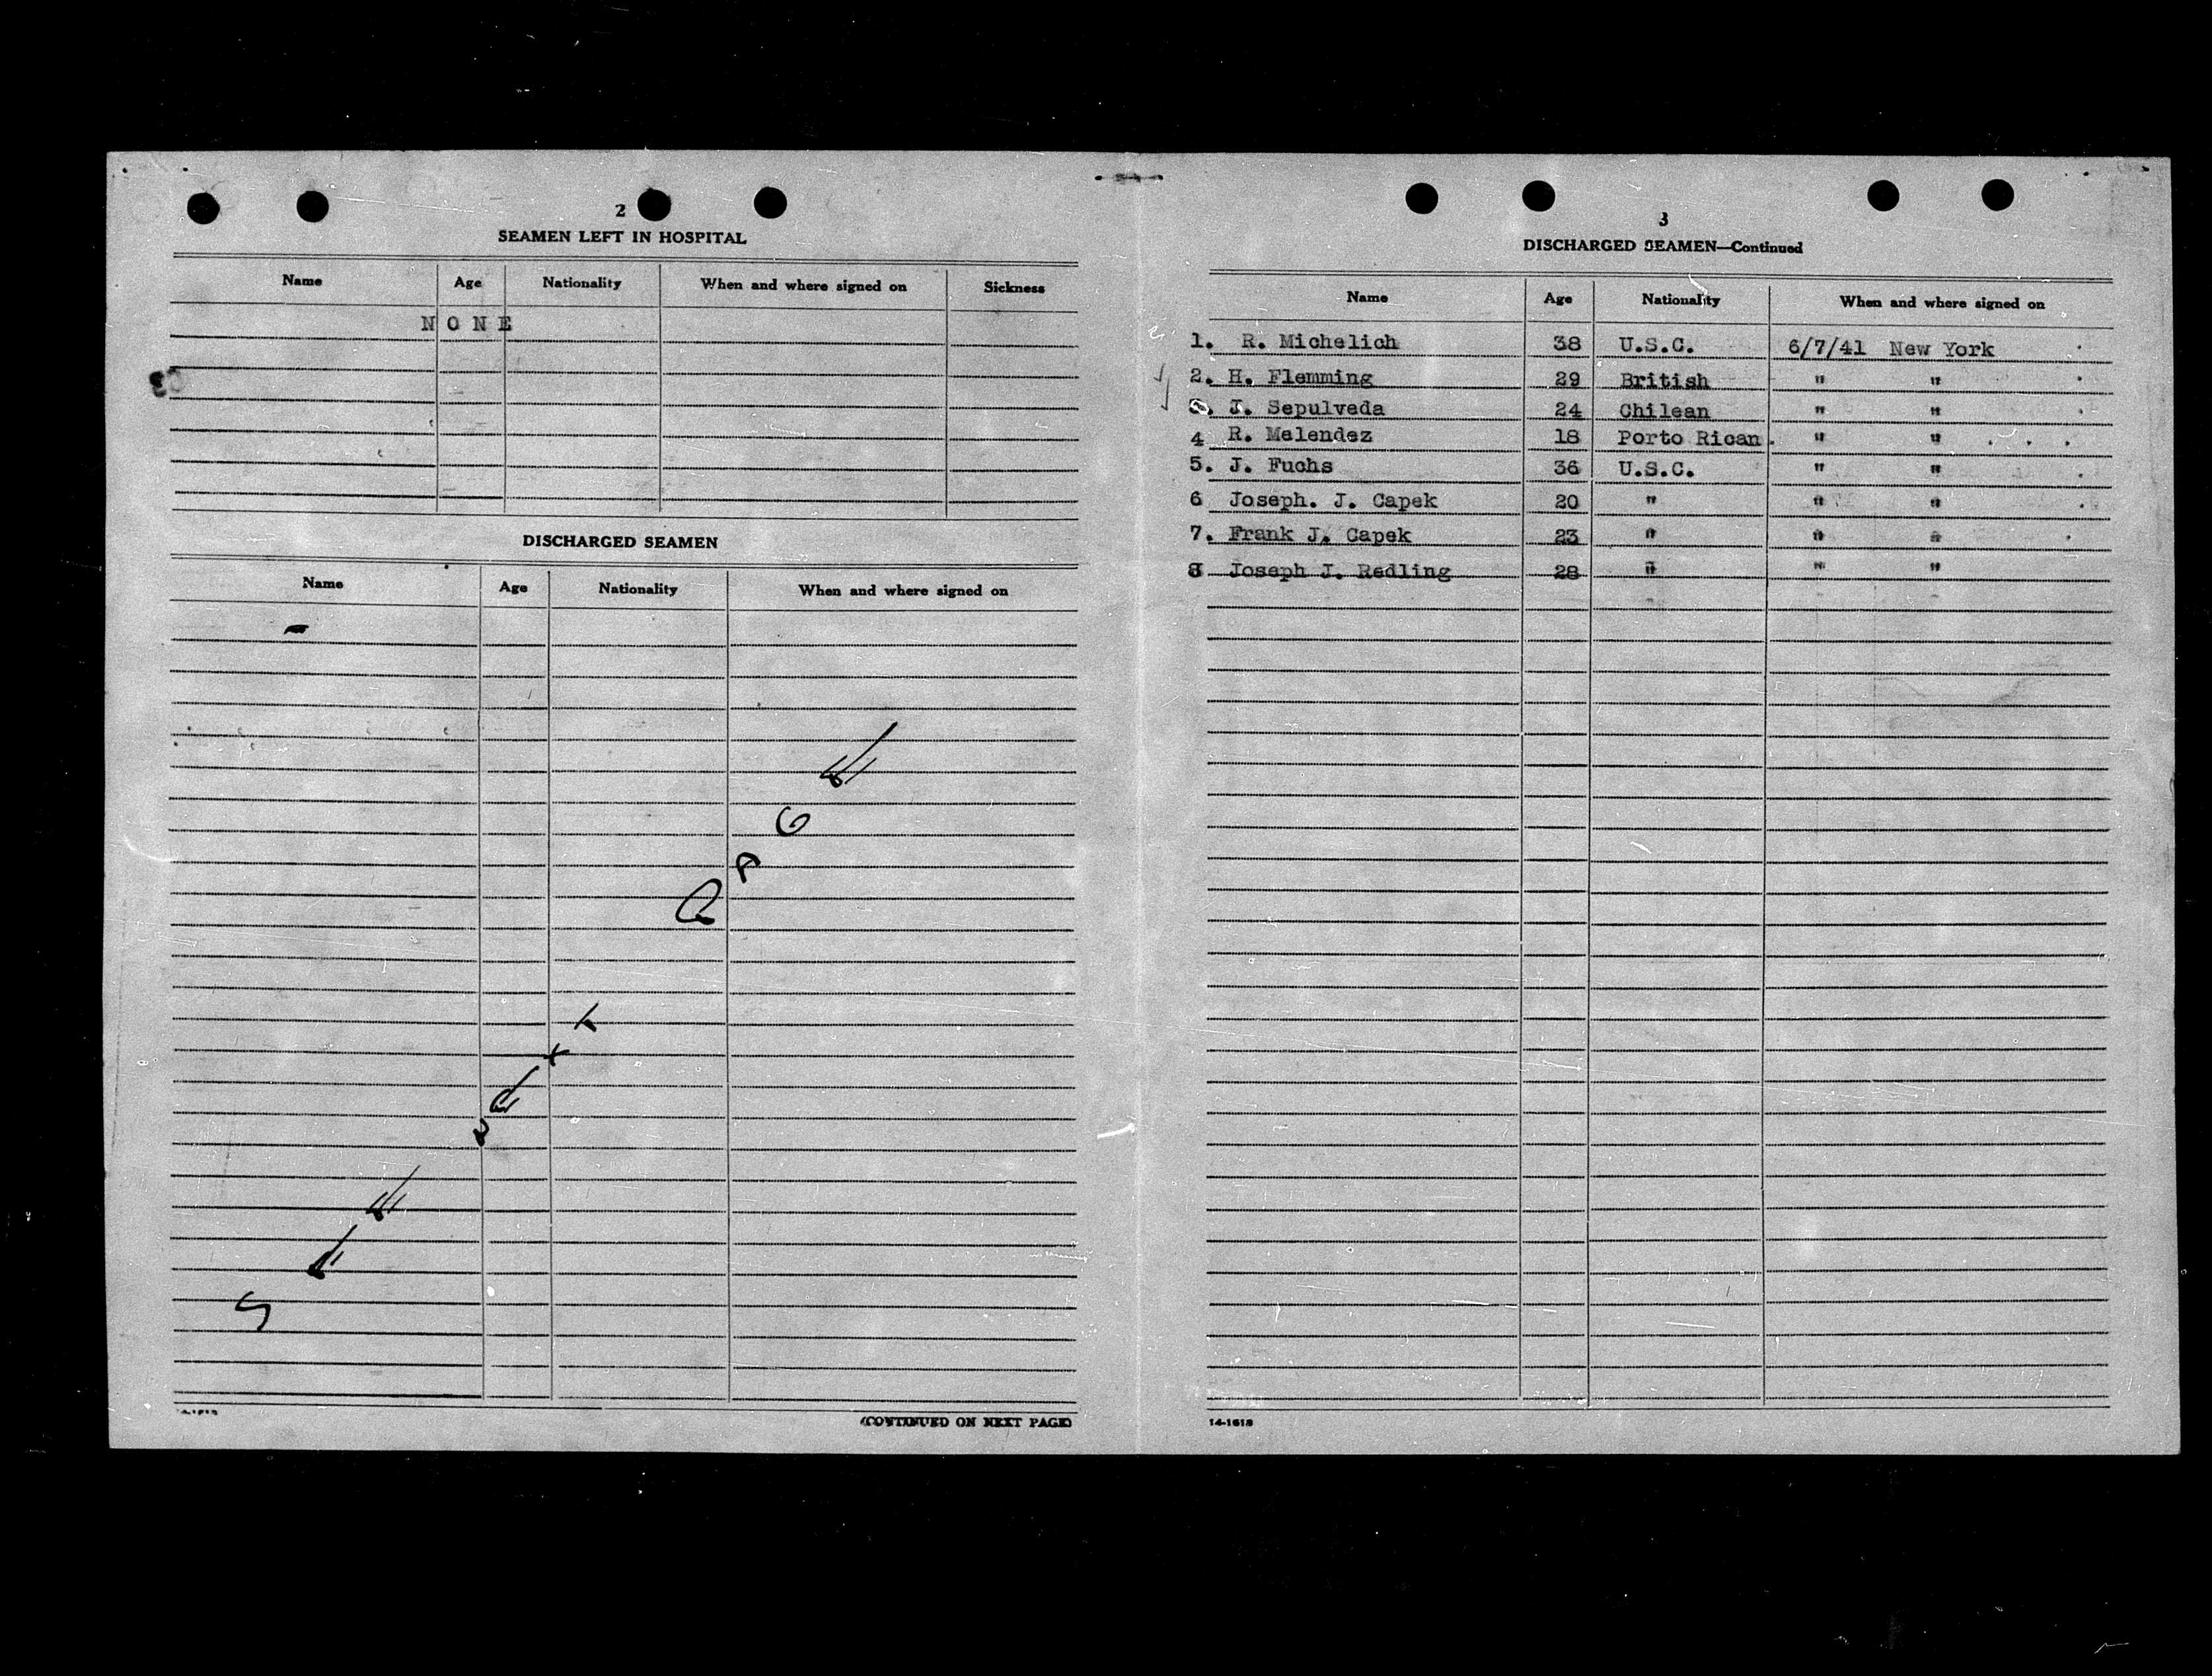 2
SEAMEN LEFT IN HOSPITAL
Name Age Nationality When and where signed on Sickness
NONE
DISCHARGED SEAMEN
Name Age Nationality When and where signed on
-
SEE NEXT PAGE
(CONTINUED ON NEXT PAGE)
3
DISCHARGED SEAMEN—Continued
Name Age Nationality When and where signed on
1. R. Michelich 38 U.S.C. 6/7/41 New York
2. H. Flemming 29 British " "
J. Sepulveda 24 Chilean " "
4 R. Melendez 18 Porto Rican. " "
5. J. Fuchs 36 U.S.C. " "
6 Joseph. J. Capek 20 " " "
7. Frank J. Capek 23 " " "
8 Joseph J. Redling 28 " " "
14-1613